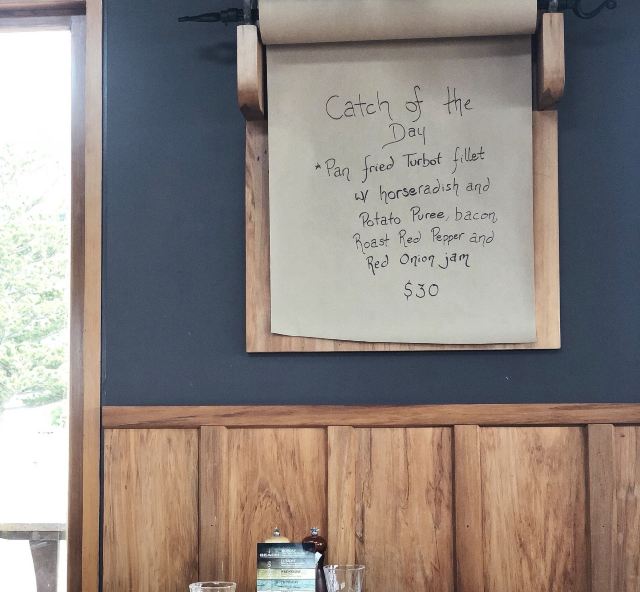 Catch of the
Day
* Pan fried Turbot fillet
w/ horseradish and
Potato Puree, bacon,
Roast Red Pepper and
Red Onion jam
$30